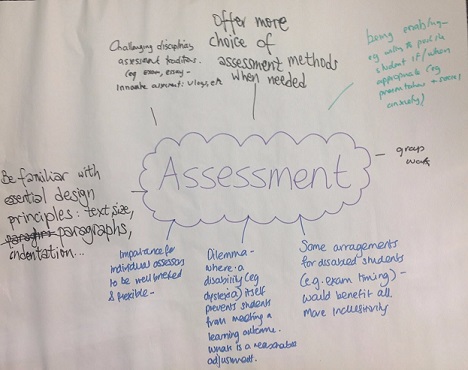 Offer more
choice of
assessment methods
when needed
Challenging disciplines
assessment traditions.
(eg exam, essay -
Innovate assessment: vlogs, etc
being enabling -
eg willing to push the
student if/when
appropriate (eg
presentations + social
anxiety)
Assessment
group
work
Be familiar with
essential design
principles: text size,
paragraphs,
indentation...
Importance for
individual assessors
to be well briefed
& flexible -
Dilemma -
where a
disability (eg
dyslexia) itself
prevents students
from meeting a
learning outcome.
what is a reasonable
adjustment.
Some arragements
for disabled students
(e.g. exam timing) -
would benefit all
more inclusively